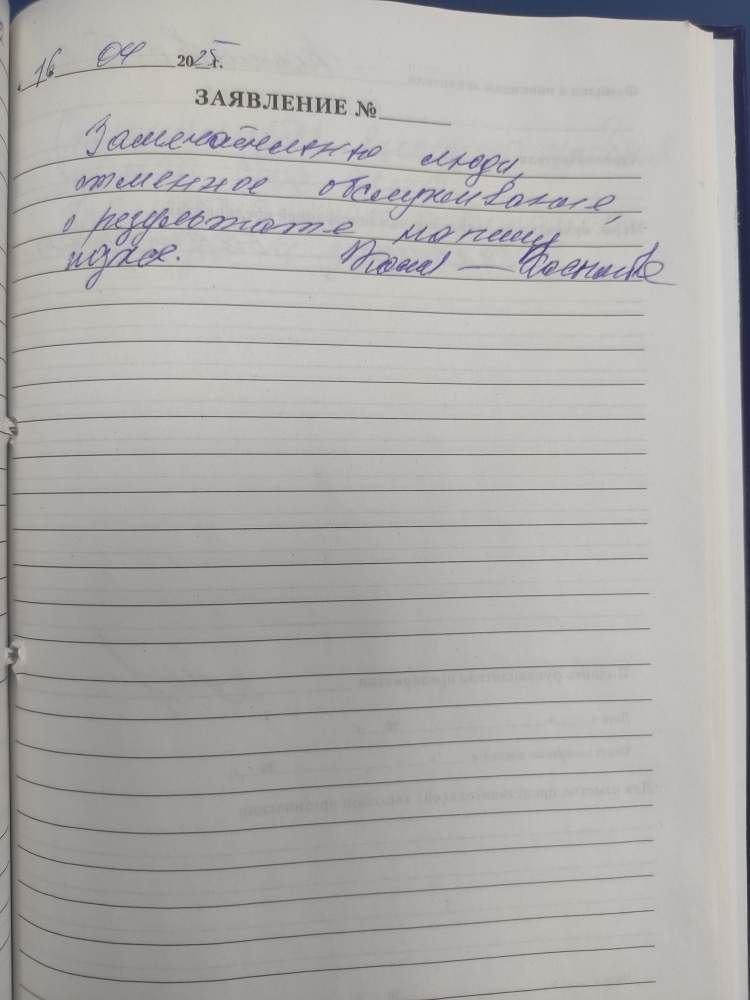 16 04 2025 г.
ЗАЯВЛЕНИЕ №
Замечательные люди,
отменное обслуживание,
о результате напишу
позже.